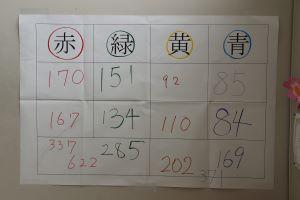 赤 緑 黄 青
170 151 92 85
167 134 110 84
337 285 202 169
622 371